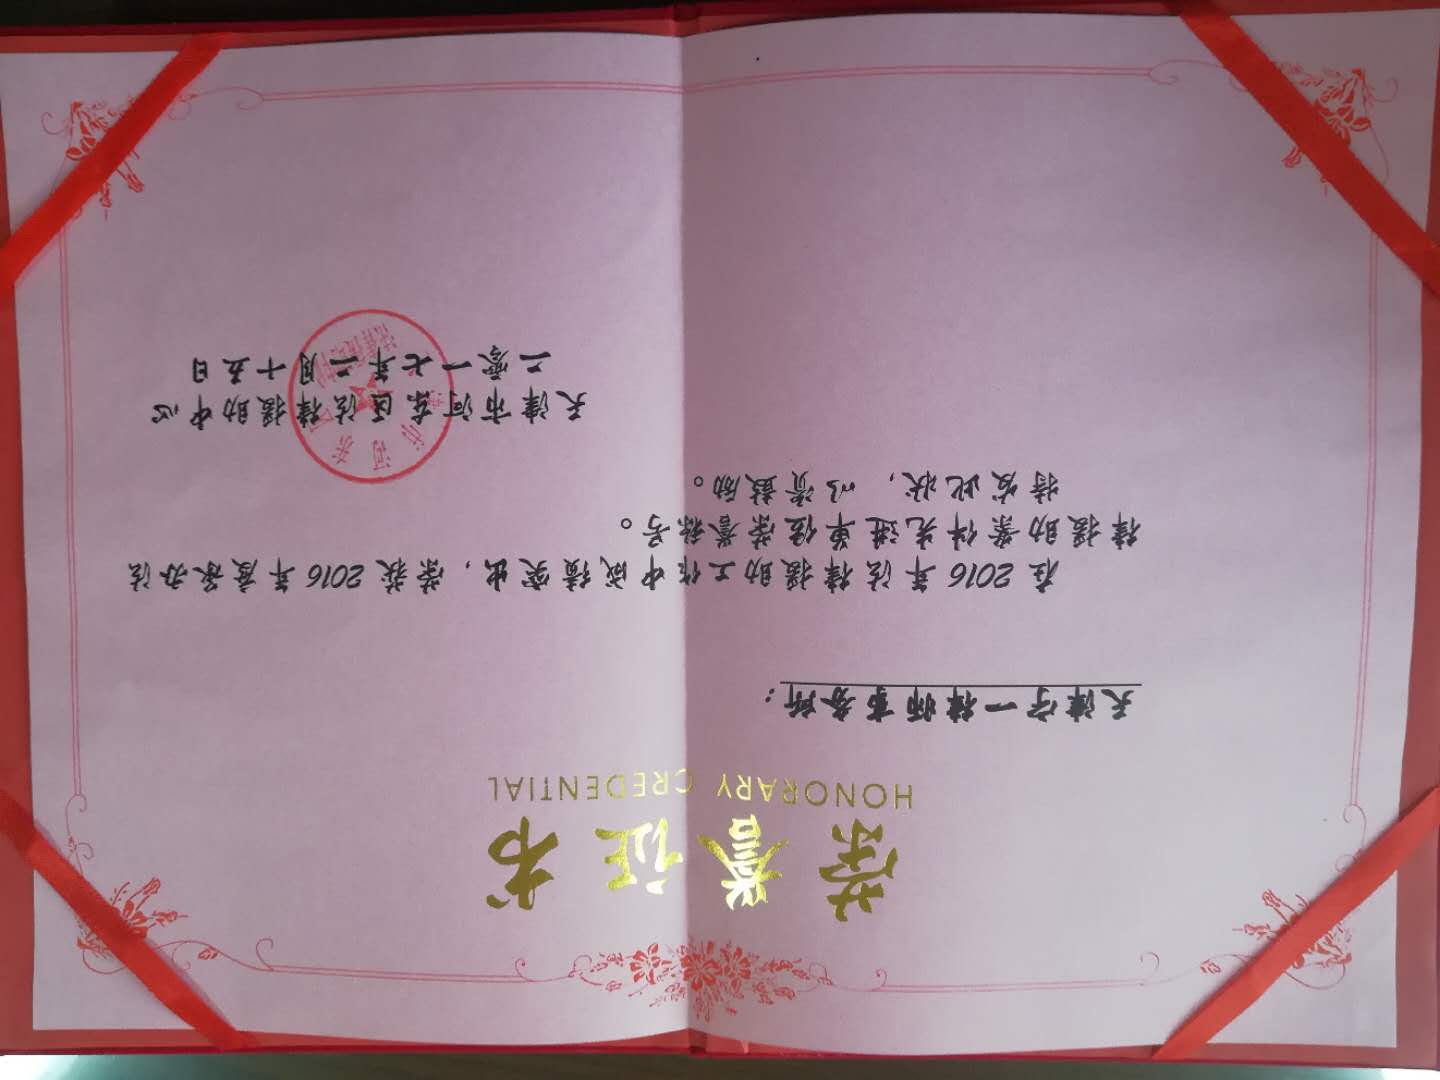 荣誉证书
HONORARY CREDENTIAL
天津守一律师事务所：
在2016年法律援助工作中成绩突出，荣获2016年度承办法
律援助案件先进单位荣誉称号。
特发此状，以资鼓励。
天津市河东区法律援助中心
二零一七年二月十五日